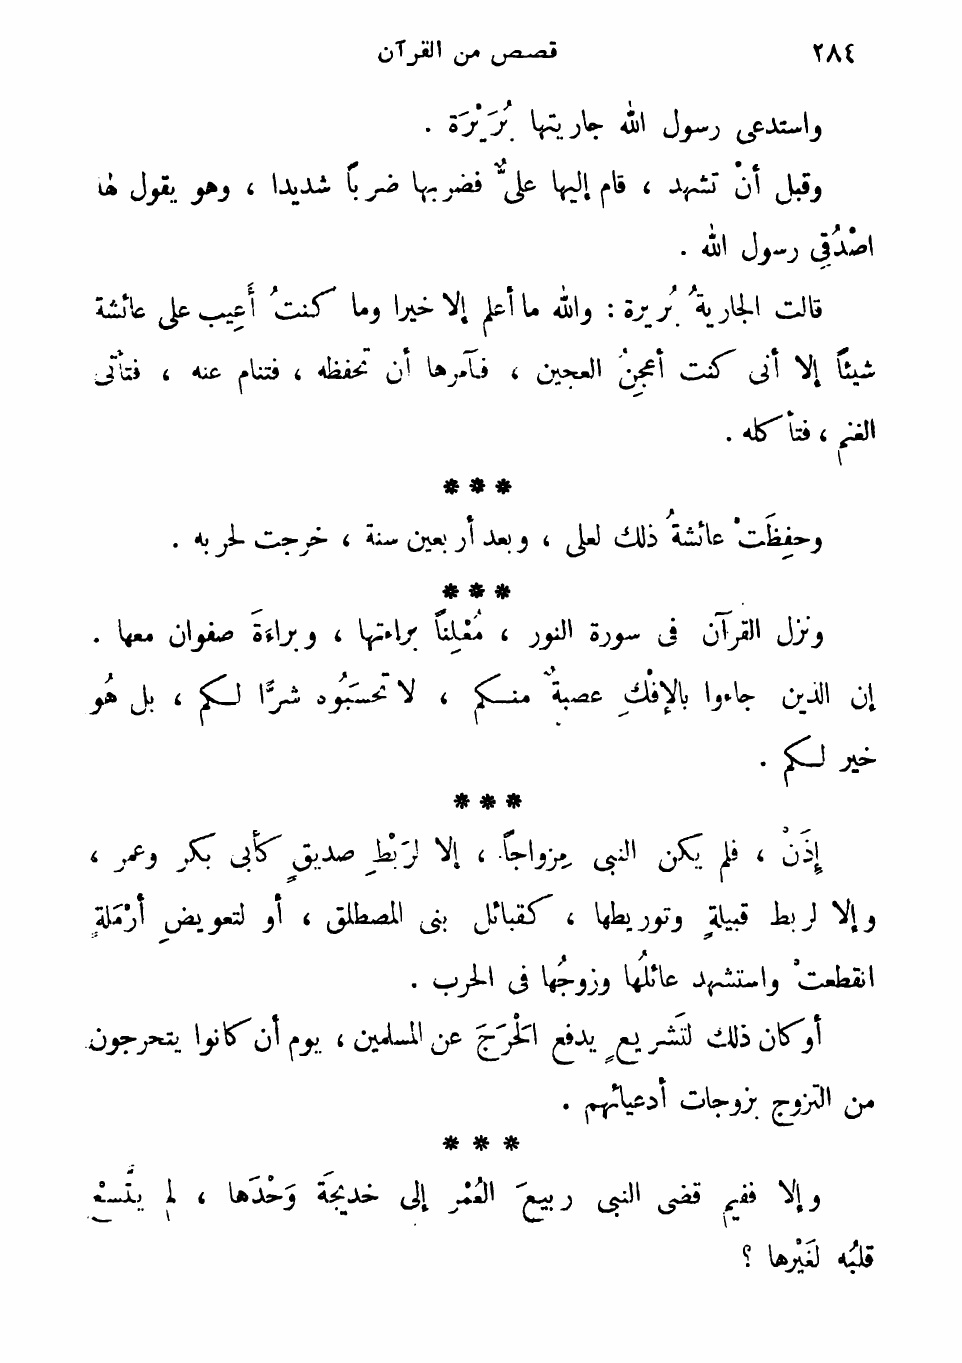 ٢٨٤ قصص من القرآن
واستدعى رسول الله جاريتها بُرَيْرَة .
وقبل أنْ تشهد ، قام إليها علىٌّ فضربها ضرباً شديدا ، وهو يقول لها
اصْدُقِي رسول الله .
قالت الجاريةُ بُريرة : والله ما أعلم إلا خيرا وما كنتُ أَعِيب على عائشة
شيئاً إلا أنى كنت أعجِنُ العجين ، فآمرها أن تحفظه ، فتنام عنه ، فتأتى
الغنم ، فتأكله .
***
وحفِظَتْ عائشةُ ذلك لعلى ، وبعد أربعين سنة ، خرجت لحربه .
***
ونزل القرآن فى سورة النور ، مُعْلِناً براءتها ، وبراءَةَ صفوان معها .
إن الذين جاءوا بالإفْكِ عصبةٌ منكم ، لا تحسَبُوه شرًّا لكم ، بل هُو
خير لكم .
***
إِذَنْ ، فلم يكن النبى مِزواجاً ، إلا لرَبْطِ صديقٍ كأبى بكر وعمر ،
وإلا لربط قبيلةٍ وتوريطها ، كقبائل بنى المصطلق ، أو لتعويضِ أرْمَلةٍ
انقطعتْ واستشهد عائلُها وزوجُها فى الحرب .
أو كان ذلك لتَشريعٍ يدفع الْحَرَجَ عن المسلمين ، يوم أن كانوا يتحرجون
من التزوج بزوجات أدعيائهم .
***
وإلا ففيم قضى النبى ربيعَ العُمْر إلى خديجَة وَحْدَها ، لم يتَّسعْ
قلبُه لغَيْرها ؟